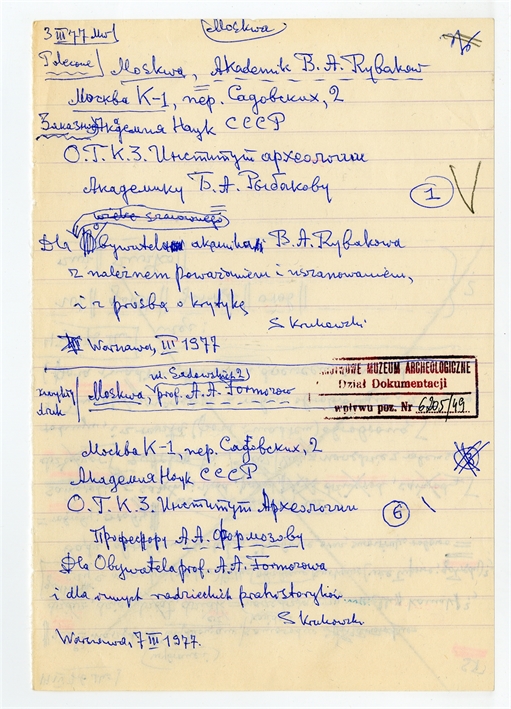 3 III 77
Moskwa
Polecone
Moskwa, Akademik B. A. Rybakow
Москва К-1, пер. Садовских, 2
Заказное Академия Наук СССР
О.Т.К.З. Институт археологии
Академику Б. А. Рыбакову
1
wielce szanownego
Dla Obywatela akademika B. A. Rybakowa
z należnem poważaniem i uszanowaniem,
i z prośbą o krytykę
S Krukowski
Warszawa, III 1977
ul. Sadowskich 2
zwykły druk
Moskwa, prof. A. A. Formozow
MUZEUM ARCHEOLOGICZNE
Dział Dokumentacji
wpływu poz. Nr 6205/49
Москва К-1, пер. Садовских, 2
Академия Наук СССР
О.Т.К.З. Институт Археологии
6
Професору А.А. Формозову
Dla Obywatela prof. A. A. Formozowa
i dla innych radzieckich prahistoryków
S Krukowski
Warszawa, 7 III 1977.